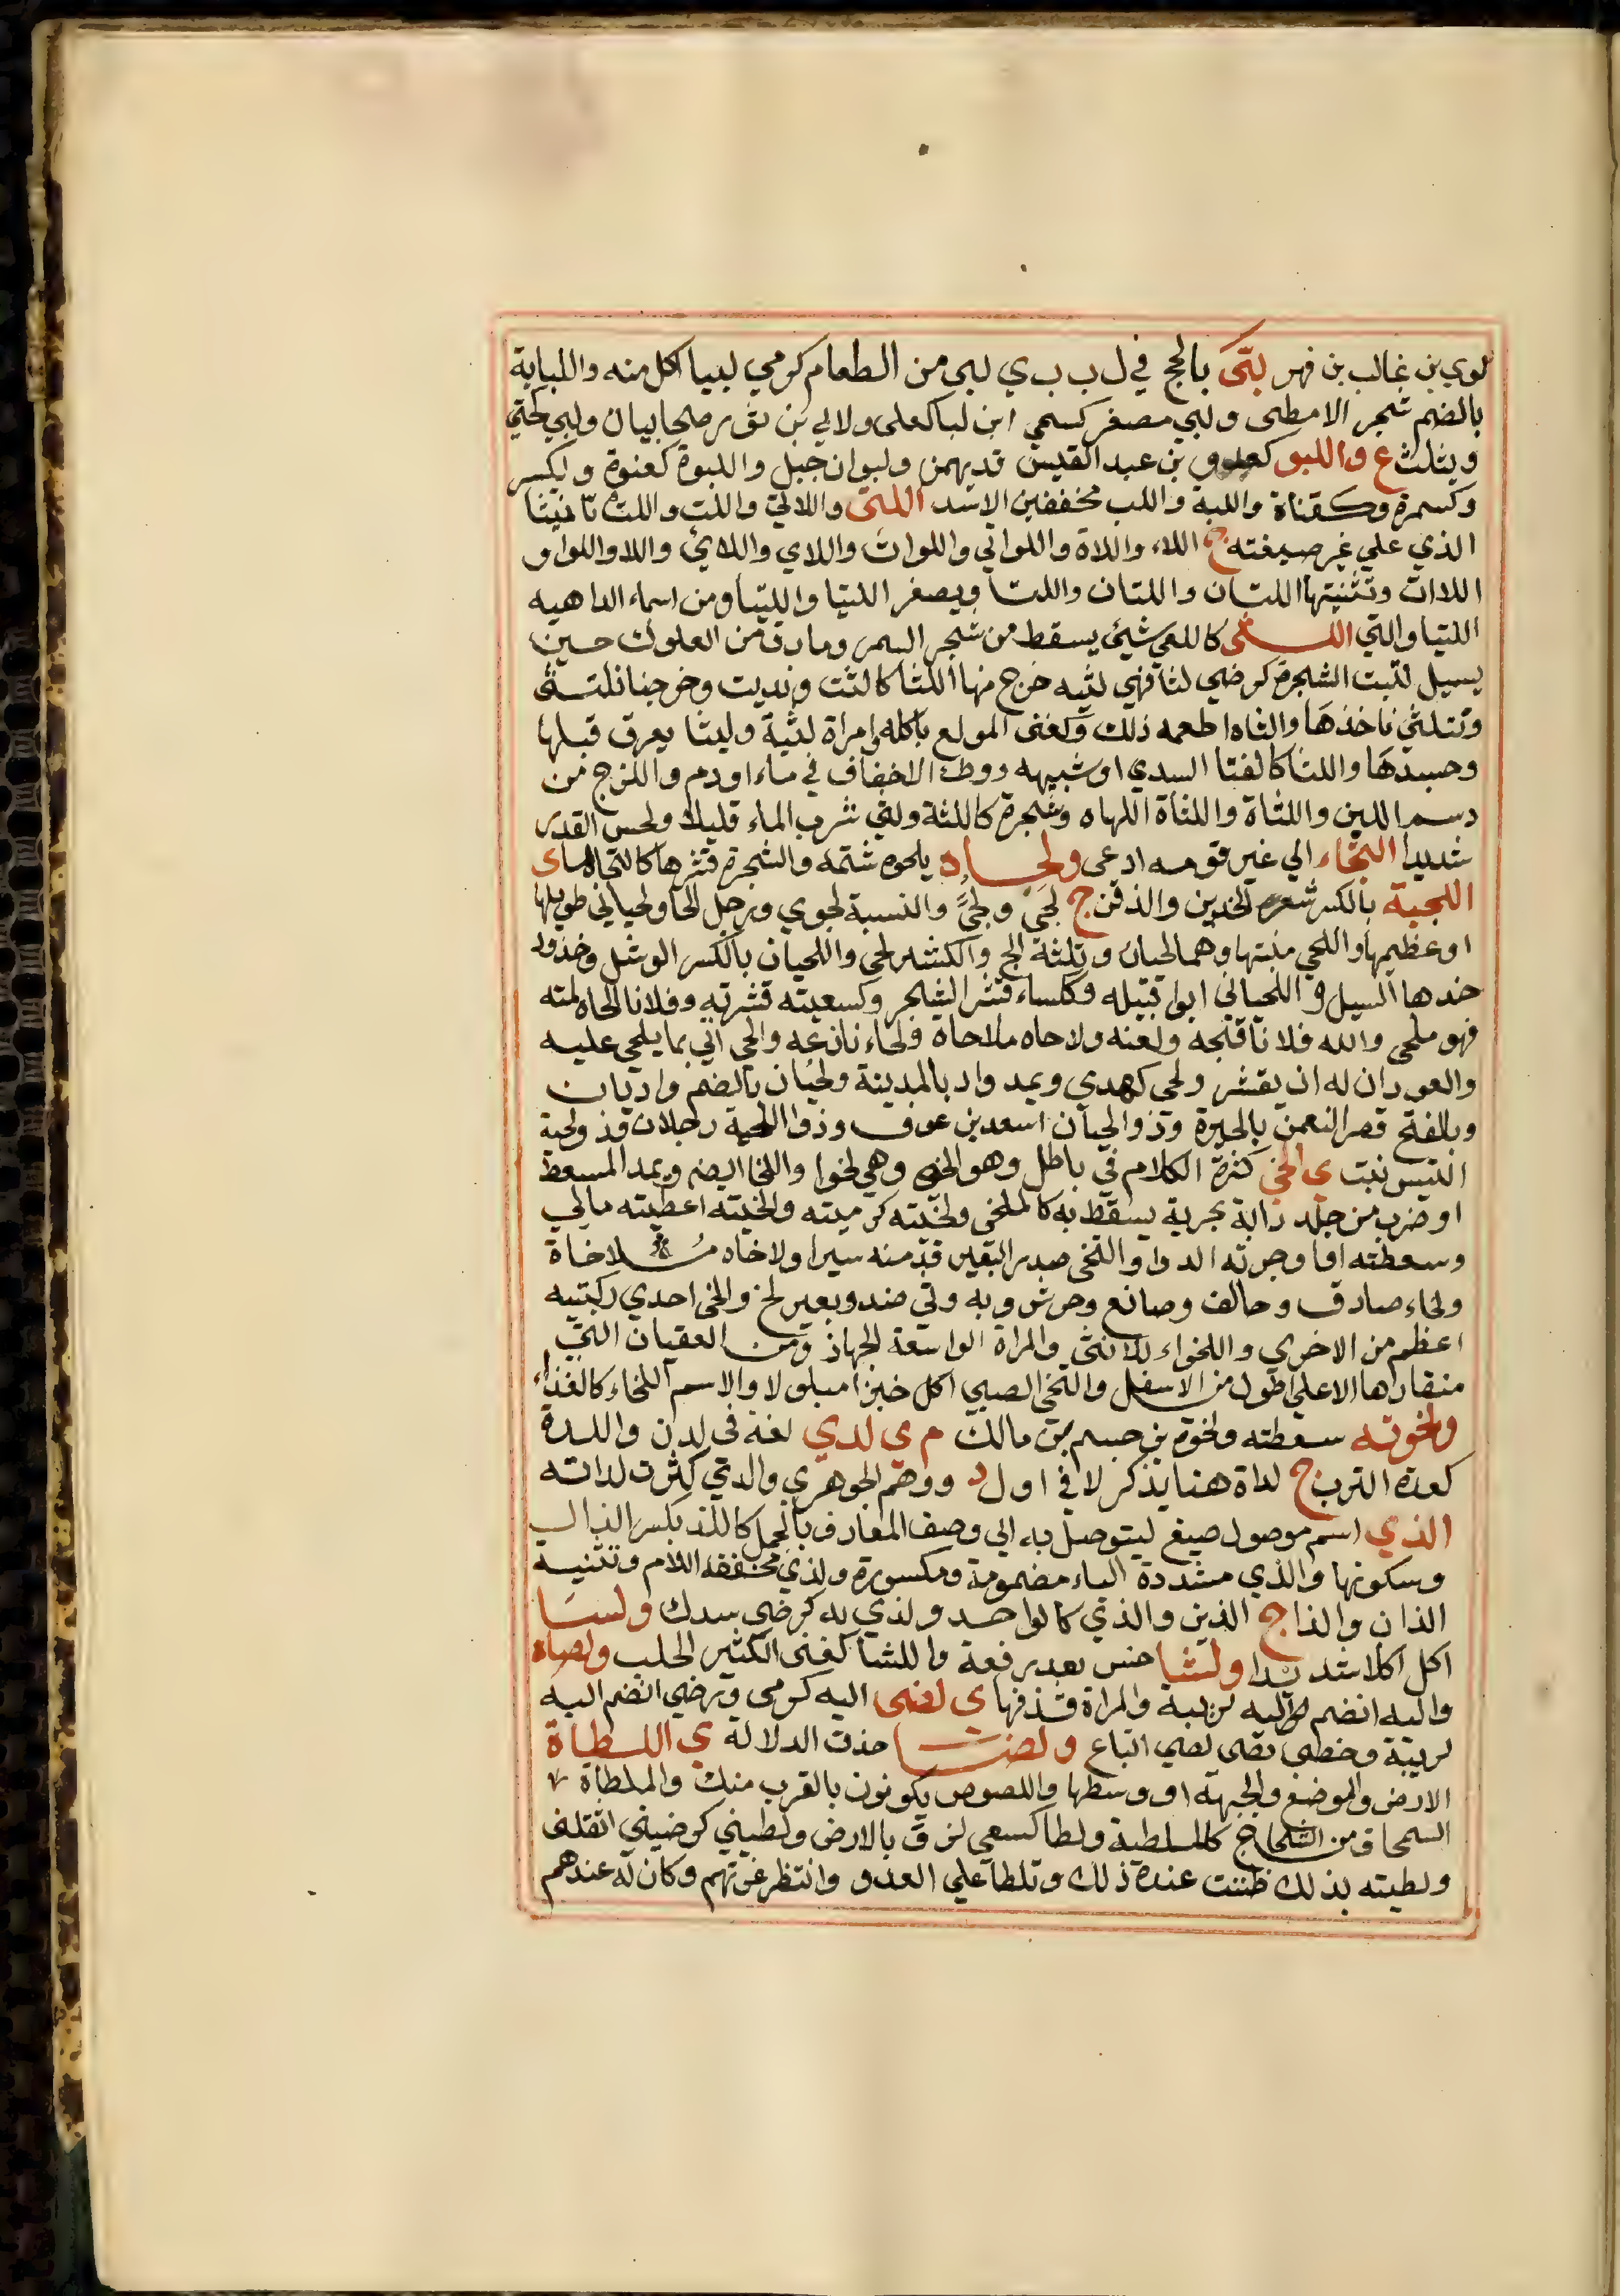 لوي بن غالب بن فهر لبّى بالحج في ل ب ب ي لبي من الطعام كومي لبيا اكل منه واللباية
بالضم شجر الامطى ولبي مصغر كسمي ابن لبا كعلى ولابي بن ثور صحابيان ولبي كحتي
ويثلث ع و اللبو كعدو بن عبد القيس قد يهمز ولبوان جبل واللبوة كعنوة ويكسر
وكسمرة وكقناة واللبة واللب مخففين الاسد اللتى واللاتي واللت واللت تانيث
الذي علي غر صيغته ج اللاء واللاة واللواتي واللوات واللاي واللائ واللا واللوا و
اللاات وتثنيتها اللتان واللتان واللتا ويصغر اللتيا واللتيا ومن اسماء الداهيه
اللتيا والتي اللثى كاللعي شيئ يسقط من شجر السمر وما رق من العلوك حين
يسيل لثيت الشجرة كرضي لثا فهي لثيه خرج منها اللثا كالثت ونديت وخرجنا نلتثى
ونتلثى ناخذها والثاه اطعمه ذلك وكغنى المولع باكله وامراة لثية وليثا يعرق قبلها
وجسدها واللثا كالفتا السدي او شبيهه ووطء الاخفاف في ماء او دم واللزج من
دسم اللبن واللثاة واللثاة اللهاه وشجرة كاللثة ولثي شرب الماء قليلا ولحس القدر
شديدا التجاء الي غير قومه ادعى و لحاه يلحوه شتمه والشجرة قشرها كالتحاها ى
اللحية بالكسر شعر الخدين والذقن ج لحى ولحىً والنسبة لحوي ورجل الحا ولحياني طويلها
او عظيمها واللحي منبتها وهما لحيان وثلثة الح والكثير لحى واللحيان بالكسر الوشل وخدود
خدها السيل و اللحياني ابو قبيله وككساء قشر الشجر وكسعيته قشرته وفلانا لحاه لمته
فهو ملحى والله فلانا قبحه ولعنه ولاحاه ملاحاة ولحاء نازعه والحى اتي بما يلحى عليه
والعود ان له ان يقشر ولحى كهدي ويمد واد بالمدينة ولحيان بالضم واديان
وبالفتح قصر النعمن بالحيرة وذو لحيان اسعد بن عوف وذوا اللحية رجلان وذو لحية
التيس نبت ى اللخي كثرة الكلام في باطل وهو الخى وهي لخوا واللخا ايضم ويمد المسعط
او ضرب من جلد دابة بحرية يسقط به كالملخى ولخيته كرميته والخيته اعطيته مالي
وسعطته او اوجرته الدوا والتخى صدر البعير قد منه سيرا ولاخاه ملاخاة
ولخاء صادق وحالف وصانع وحرش وبه وشي ضد وبعير لخ والخى احدي ركبتيه
اعظم من الاخري واللخواء للانثى والمراة الواسعة الجهاز ومن العقبان التي
منقارها الاعلي اطول من الاسفل والتخى الصبي اكل خبزا مبلولا والاسم اللخاء كالغذاء
و لخوته سعطته ولخوة بن جسم بن مالك م ى لدي لغة في لدن واللدة
كعدة الترب ج لداة هنا يذكر لا في ا و ل د ووهم الجوهري والدتي كثرت لداته
الذي اسم موصول صيغ ليتوصل به الي وصف المعارف بالجمل كاللذ بكسر الذال
وسكونها والذي مشددة الياء مضمومة ومكسورة ولذي مخففة اللام وتثنيته
الذان والذا ج الذين والذي كالواحد ولذي به كرضي سدك و لسا
اكل اكلا شديدا و لشا خس بعد رفعة واللشا كغنى الكثير الحلب و لصاه
واليه انضم اليه لريبة والمراة قذفها ى لصى اليه كرمى ورضي انضم اليه
لريبة وخصى بصى لصي اتباع و لضا حذت الدلالة ى اللطاة
الارض والموضع والجبهة او وسطها واللصوص يكونون بالقرب منك والملطاة
السمحاق من الشجاج كالملطية ولطا كسعي لزق بالارض ولطيني كرضيني اثقلني
ولطيته بذلك ظننت عنده ذلك وتلطا علي العدو وانتظر غرتهم وكان له عندهم